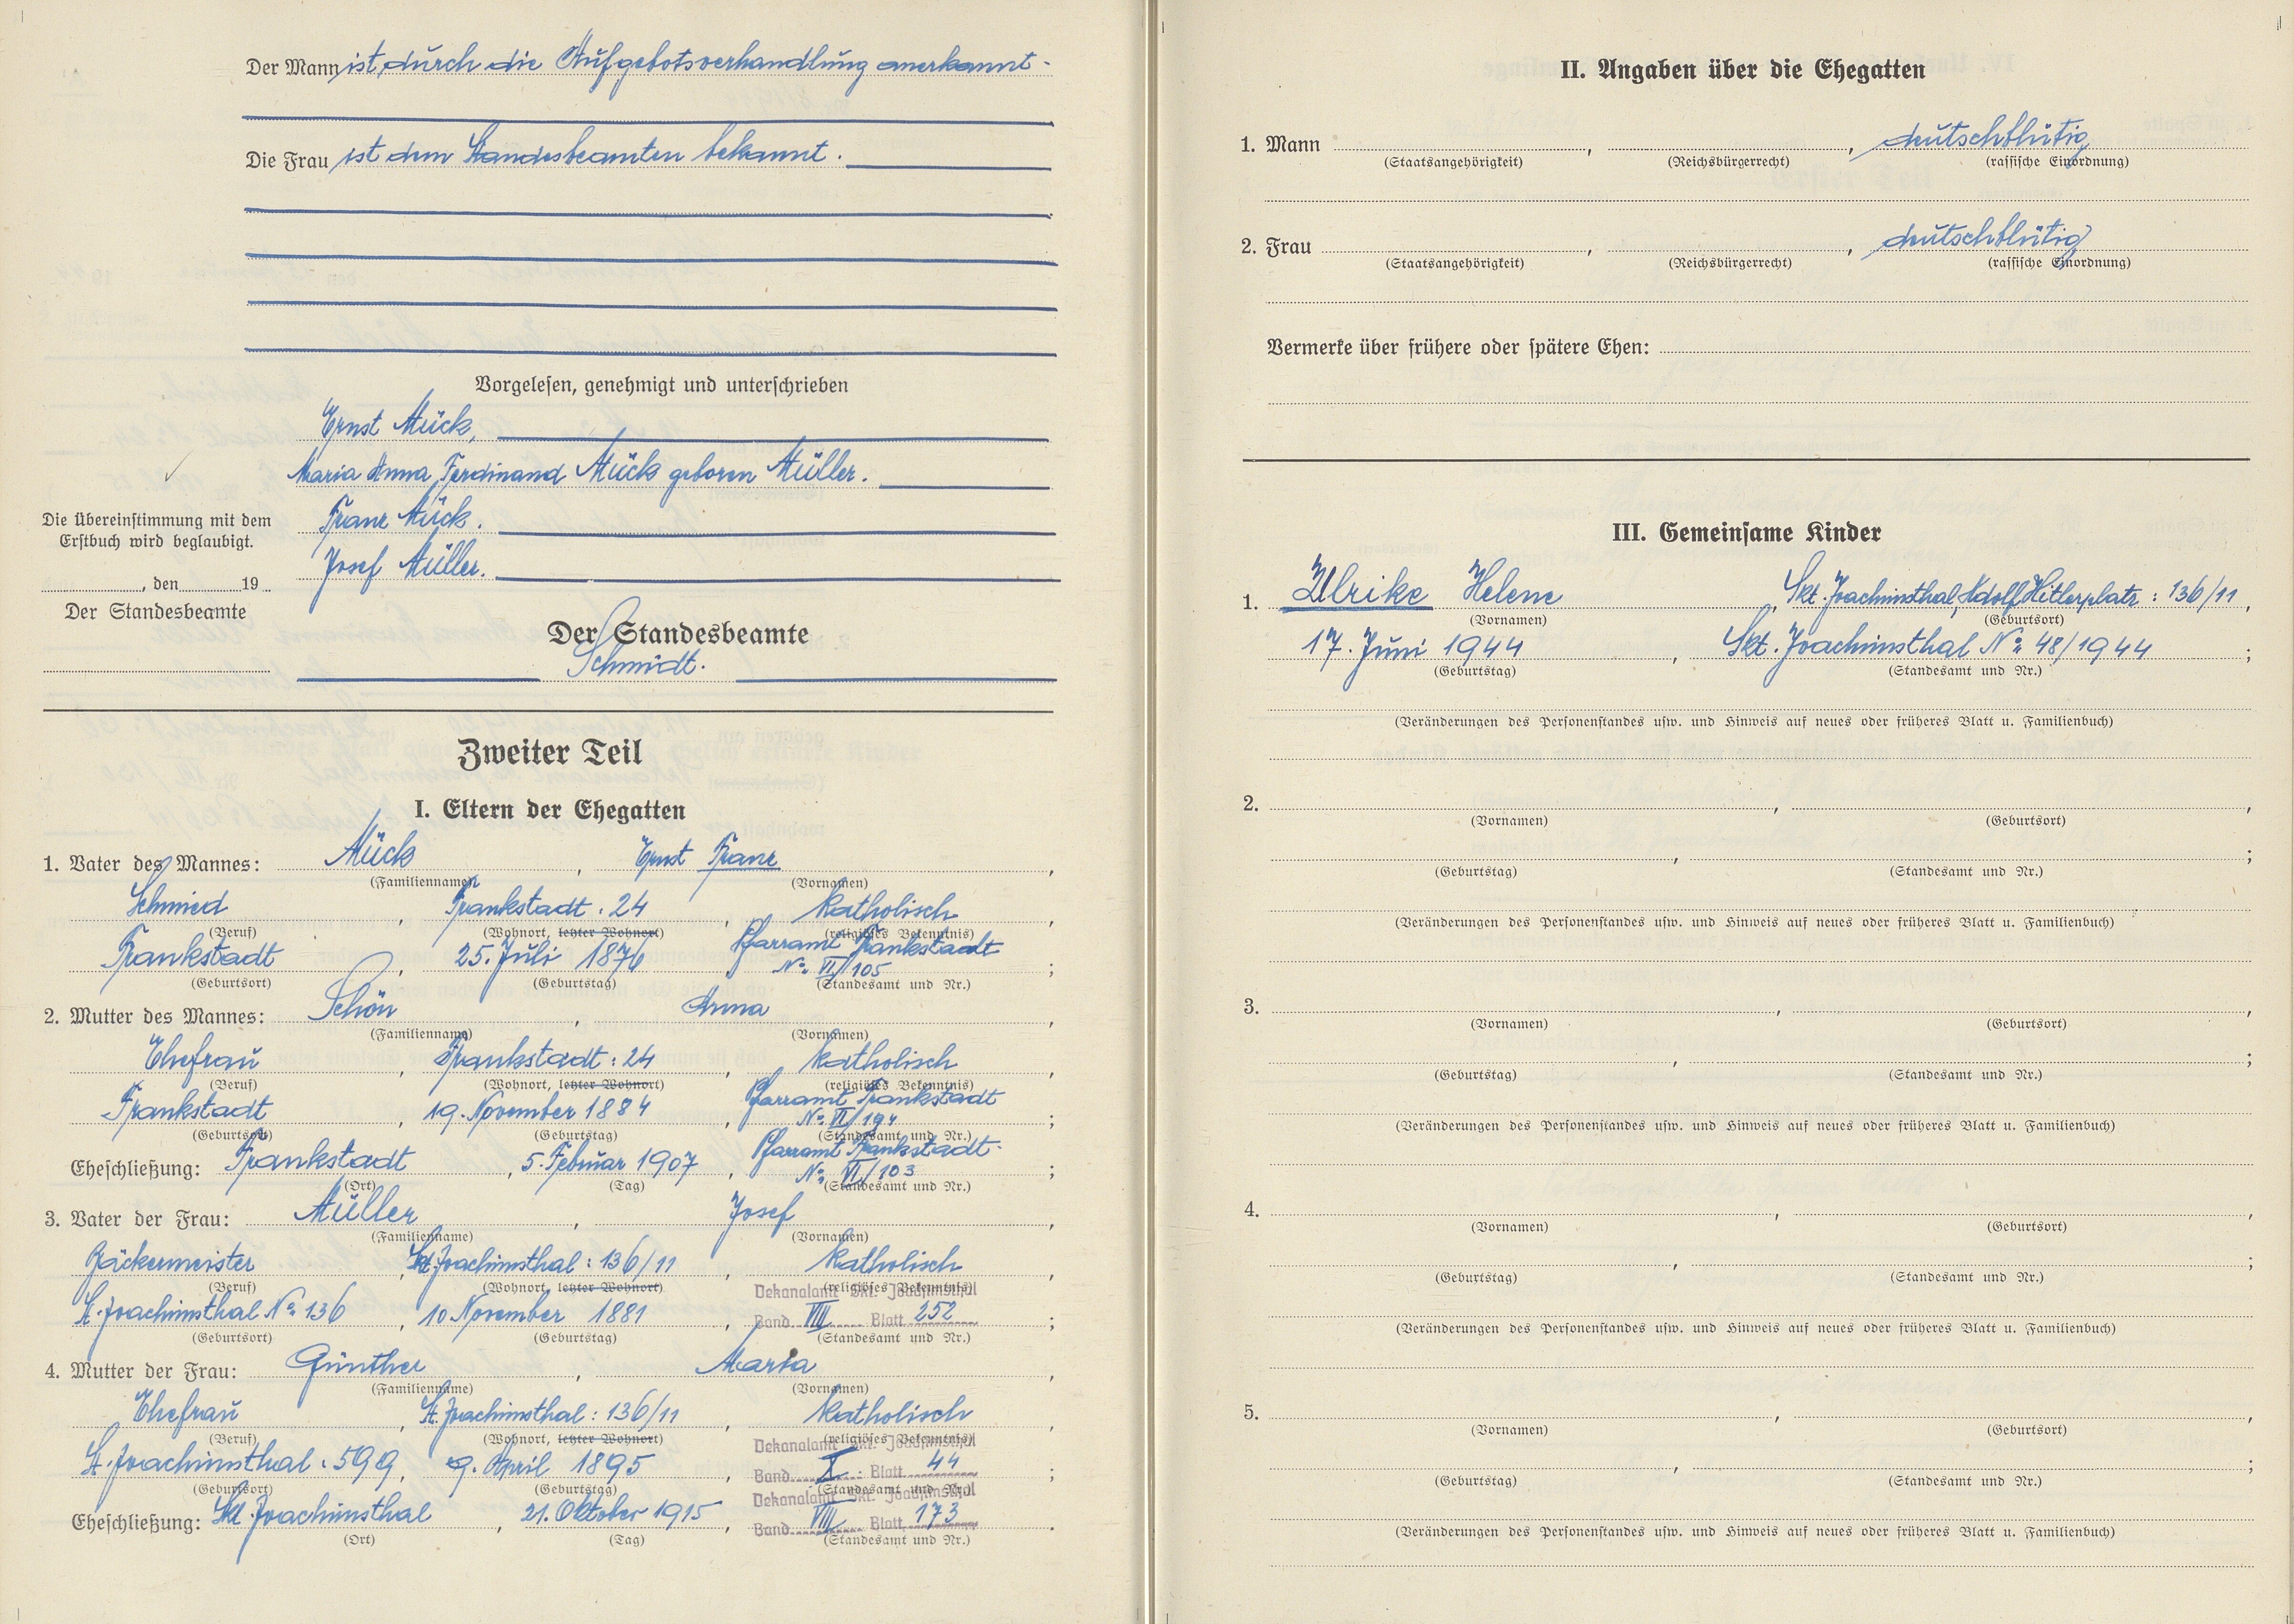 Der Mann ist durch die Aufgebotsverhandlung anerkannt.
Die Frau ist dem Standesbeamten bekannt.
Vorgelesen, genehmigt und unterschrieben
Ernst Mück,
Maria Anna Ferdinand Mück geboren Müller.
Franz Mück.
Josef Müller.
Die Übereinstimmung mit dem
Erstbuch wird beglaubigt.
, den 19
Der Standesbeamte
Der Standesbeamte
Schmidt.
Zweiter Teil
I. Eltern der Ehegatten
1. Vater des Mannes: Mück, Ernst Franz,
(Familiennamen) (Vornamen)
Schmied, Frankstadt : 24, katholisch,
(Beruf) (Wohnort, letzter Wohnort) (religiöses Bekenntnis)
Frankstadt, 25. Juli 1876, Pfarramt Frankstadt
No. VI/105;
(Geburtsort) (Geburtstag) (Standesamt und Nr.)
2. Mutter des Mannes: Schön, Anna,
(Familienname) (Vornamen)
Ehefrau, Frankstadt : 24, katholisch,
(Beruf) (Wohnort, letzter Wohnort) (religiöses Bekenntnis)
Frankstadt, 19. November 1884, Pfarramt Frankstadt
No. VI/194;
(Geburtsort) (Geburtstag) (Standesamt und Nr.)
Eheschließung: Frankstadt, 5. Februar 1907, Pfarramt Frankstadt
No. VI/103;
(Ort) (Tag) (Standesamt und Nr.)
3. Vater der Frau: Müller, Josef,
(Familienname) (Vornamen)
Bäckermeister, Skt. Joachimsthal : 136/11, katholisch,
(Beruf) (Wohnort, letzter Wohnort) (religiöses Bekenntnis)
Dekanalamt Skt. Joachimsthal
St. Joachimsthal No. 136, 10 November 1881, Band VIII Blatt 252;
(Geburtsort) (Geburtstag) (Standesamt und Nr.)
4. Mutter der Frau: Günther, Maria,
(Familienname) (Vornamen)
Ehefrau, St. Joachimsthal : 136/11, katholisch,
(Beruf) (Wohnort, letzter Wohnort) (religiöses Bekenntnis)
Dekanalamt Skt. Joachimsthal
St. Joachimsthal : 599, 9. April 1895, Band X Blatt 44;
(Geburtsort) (Geburtstag) (Standesamt und Nr.)
Dekanalamt Skt. Joachimsthal
Eheschließung: Skt. Joachimsthal, 21. Oktober 1915, Band VIII Blatt 173.
(Ort) (Tag) (Standesamt und Nr.)
II. Angaben über die Ehegatten
1. Mann , , deutschblütig
(Staatsangehörigkeit) (Reichsbürgerrecht) (rassische Einordnung)
2. Frau , , deutschblütig
(Staatsangehörigkeit) (Reichsbürgerrecht) (rassische Einordnung)
Vermerke über frühere oder spätere Ehen:
III. Gemeinsame Kinder
1. Ulrike Helene, Skt. Joachimsthal, Adolf Hitlerplatz : 136/11,
(Vornamen) (Geburtsort)
17. Juni 1944, Skt. Joachimsthal No. 48/1944;
(Geburtstag) (Standesamt und Nr.)
(Veränderungen des Personenstandes usw. und Hinweis auf neues oder früheres Blatt u. Familienbuch)
2. , ,
(Vornamen) (Geburtsort)
, ;
(Geburtstag) (Standesamt und Nr.)
(Veränderungen des Personenstandes usw. und Hinweis auf neues oder früheres Blatt u. Familienbuch)
3. , ,
(Vornamen) (Geburtsort)
, ;
(Geburtstag) (Standesamt und Nr.)
(Veränderungen des Personenstandes usw. und Hinweis auf neues oder früheres Blatt u. Familienbuch)
4. , ,
(Vornamen) (Geburtsort)
, ;
(Geburtstag) (Standesamt und Nr.)
(Veränderungen des Personenstandes usw. und Hinweis auf neues oder früheres Blatt u. Familienbuch)
5. , ,
(Vornamen) (Geburtsort)
, ;
(Geburtstag) (Standesamt und Nr.)
(Veränderungen des Personenstandes usw. und Hinweis auf neues oder früheres Blatt u. Familienbuch)